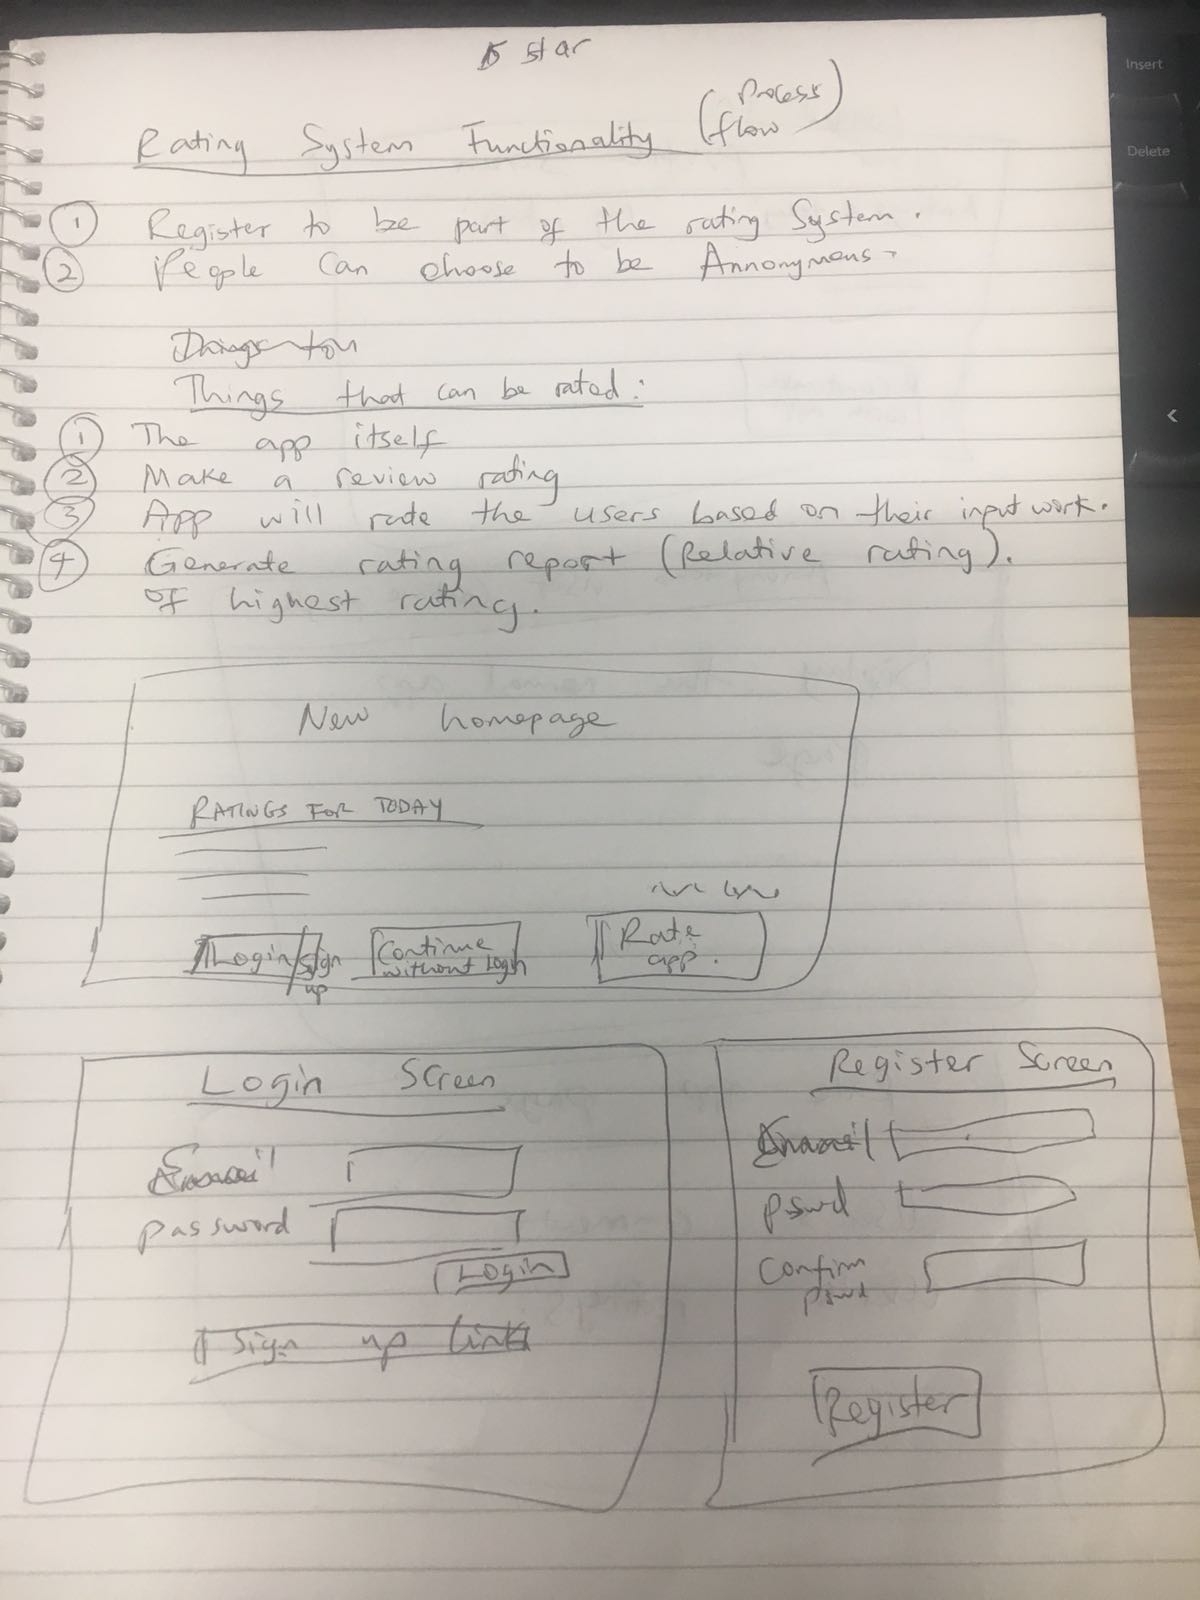 5 star
Rating System Functionality (Process flow)
① Register to be part of the rating System.
② People Can choose to be Annonymous.
Things
Things that can be rated:
① The app itself
② Make a review rating
③ App will rate the users based on their input work.
④ Generate rating report (Relative rating).
of highest rating.
New homepage
RATINGS FOR TODAY
Login/Sign up
Continue without Login
Rate app.
Login Screen
Email
password
Login
Sign up link
Register Screen
Email
pswd
Confirm pswd
Register
Insert
Delete